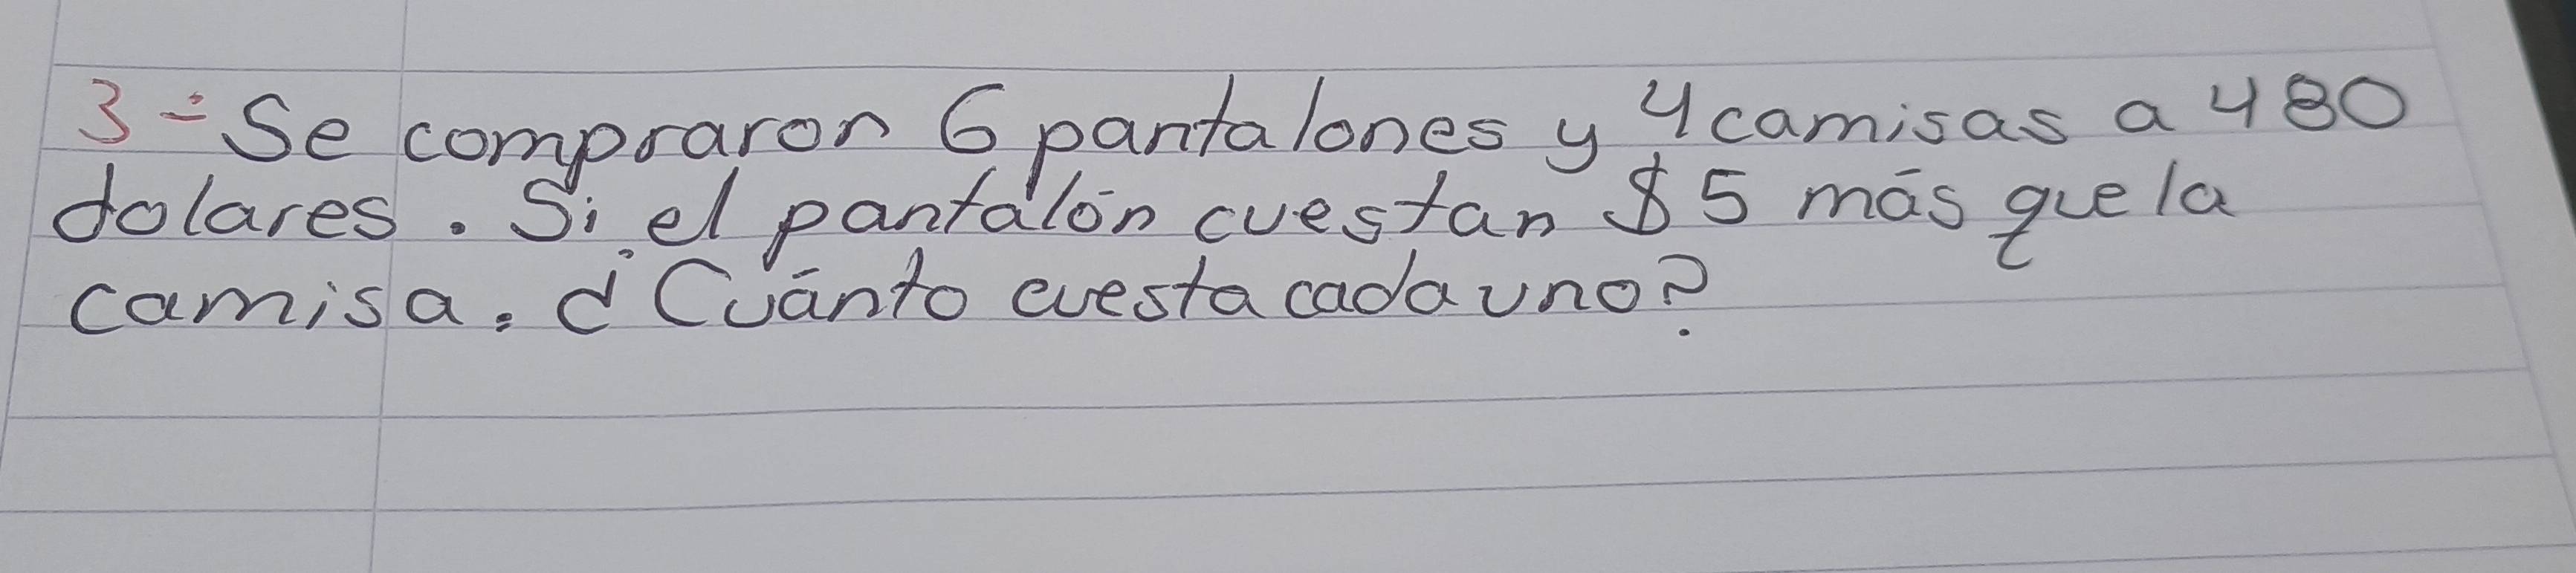 3- Se compraron 6 pantalones y 4 camisas a 480
dolares. Si el pantalón cuestan $5 más que la
camisa. ¿Cuánto cuesta cada uno?